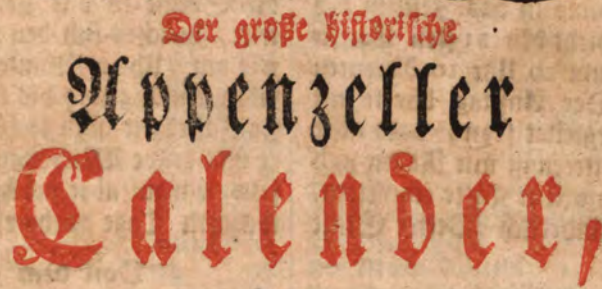 Der große historische
Appenzeller
Calender,